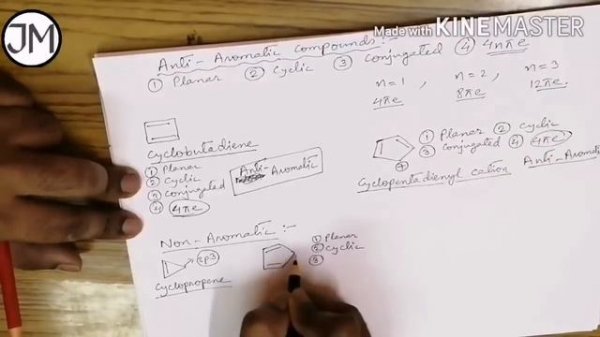 JM
Made with KINEMASTER
Anti-Aromatic compounds:-
① Planar ② Cyclic ③ Conjugated ④ 4nπe
n=1, n=2, n=3
4πe 8πe 12πe
Cyclobutadiene
① Planar
② Cyclic
③ Conjugated
④ 4πe
Anti-Aromatic
① Planar ② Cyclic
③ Conjugated ④ 4πe
+
Cyclopentadienyl cation Anti-Aromati
Non-Aromatic:-
sp3
Cyclopropene
① Planar
② Cyclic
③